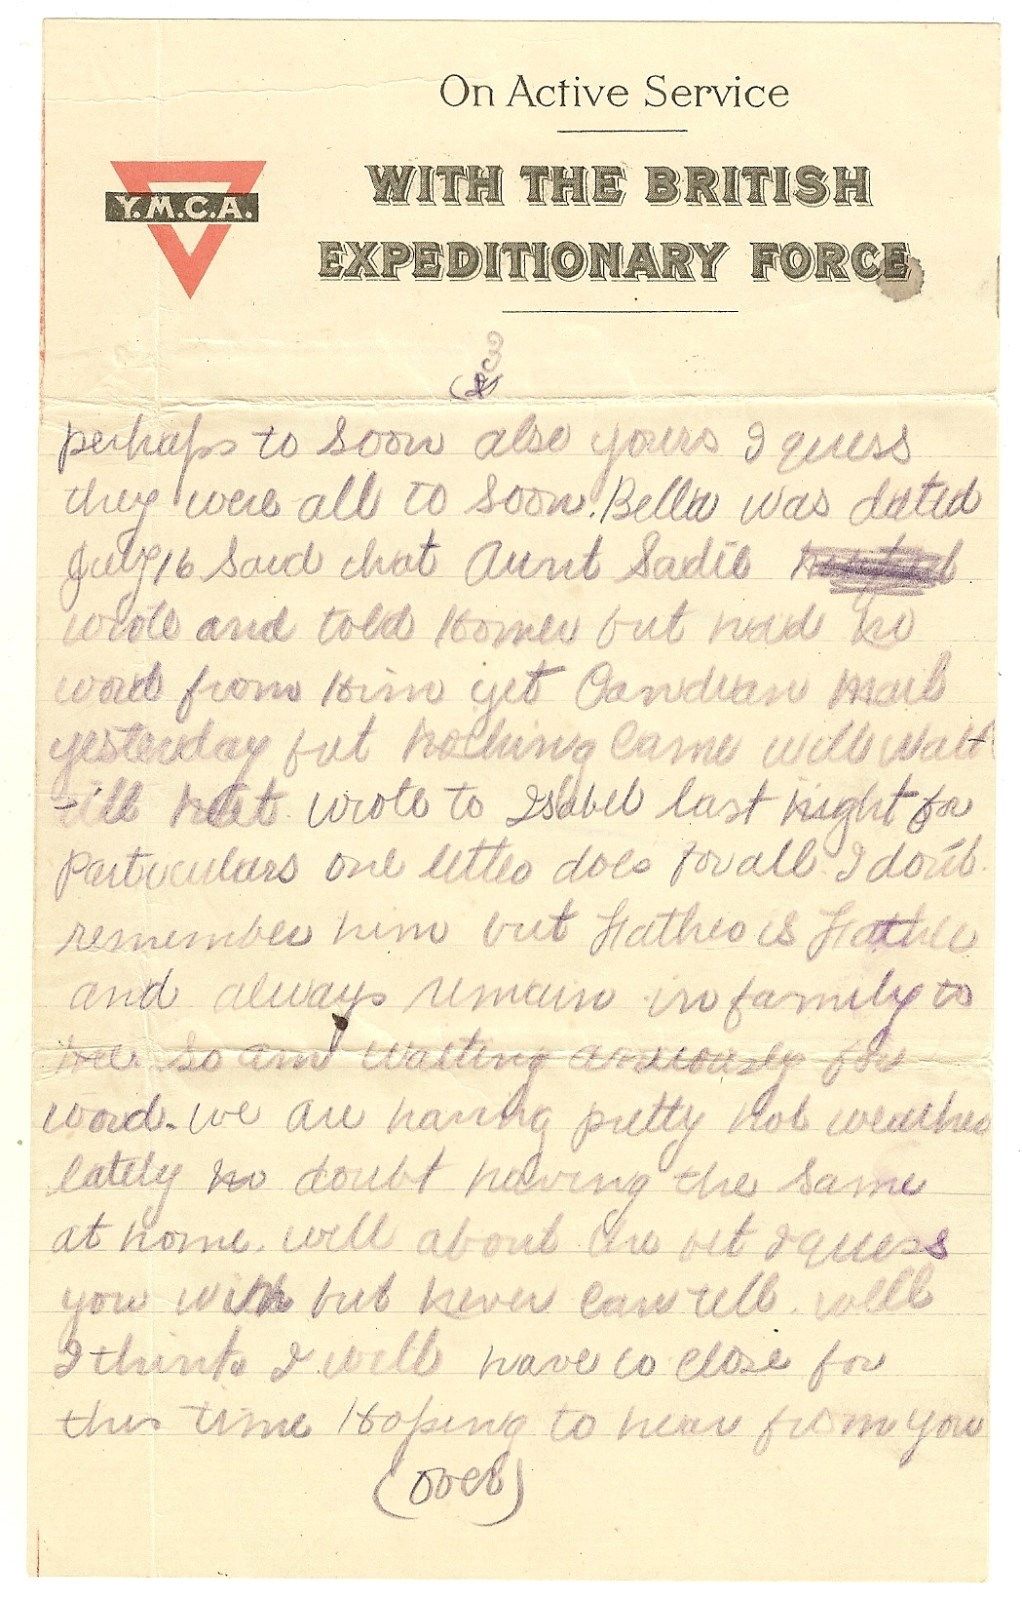 On Active Service
WITH THE BRITISH
EXPEDITIONARY FORCE
Y.M.C.A.
3
perhaps to soon also yours I guess
they were all to soon. Bella was dated
July 16 said that Aunt Sadie
wrote and told Homer but had no
word from Him yet Candian mail
yesterday but nothing Came will wait
till next wrote to Isabel last night for
Particulars one letter does for all I don't
remember him but Father is Father
and always remain in family to
me so am waiting anxiously for
word. we are having pretty hot weather
lately no doubt having the same
at home. will about the bet I guess
you win but never Can tell. well
I think I will have to close for
this time Hoping to hear from you
(over)